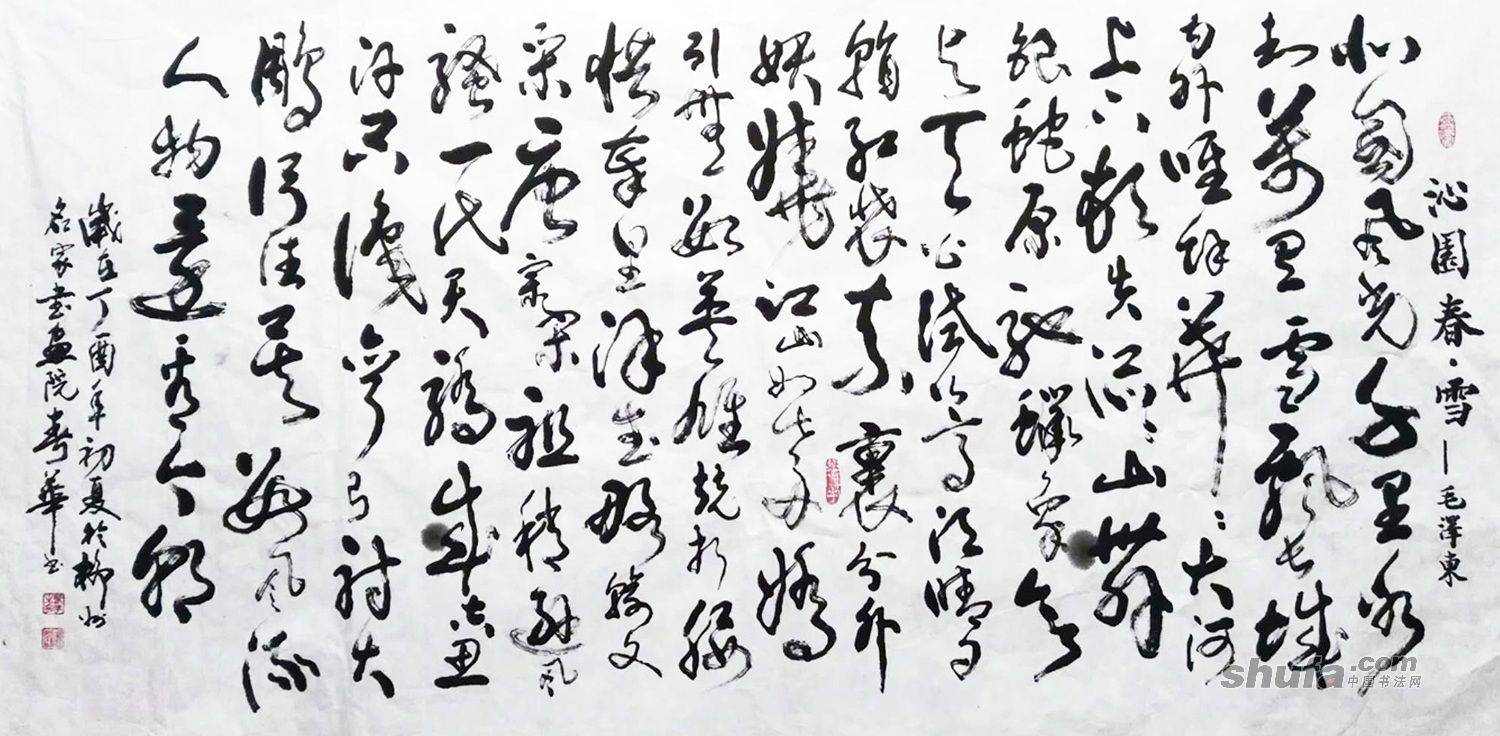 沁園春·雪—毛澤東
北國風光千里冰
封萬里雪飄長城
內外唯餘莽〻大河
上下頓失滔〻山舞
銀蛇原馳蠟象欲
與天公試比高須晴日
看紅裝素裹分外
妖嬈江山如此多嬌
引無數英雄競折腰
惜秦皇漢武略輸文
采唐宗宋祖稍遜風
騷一代天驕成吉思
汗只識彎弓射大
鵰俱往矣數風流
人物還看今朝
歲在丁酉年初夏於柳州
名家書畫院春華書
shufa.com
中国书法网